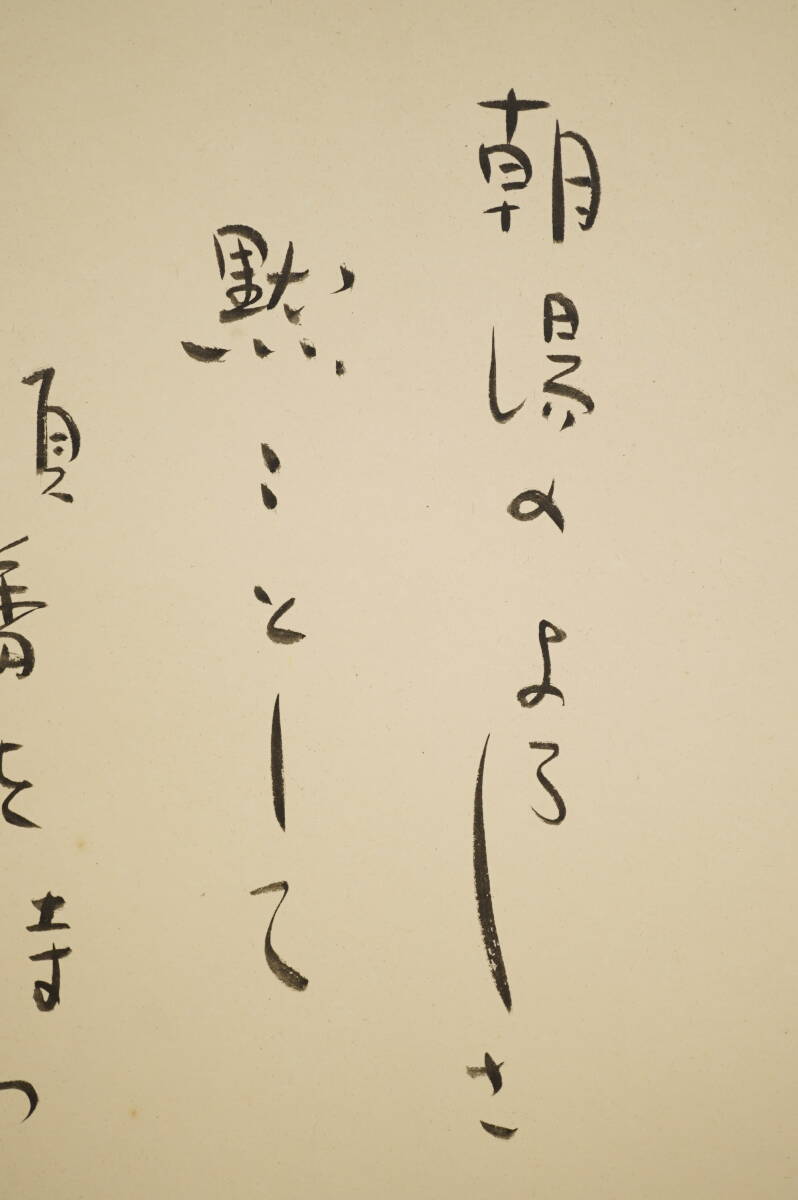 朝湯のよろしさ
黙々として
順番を待つ